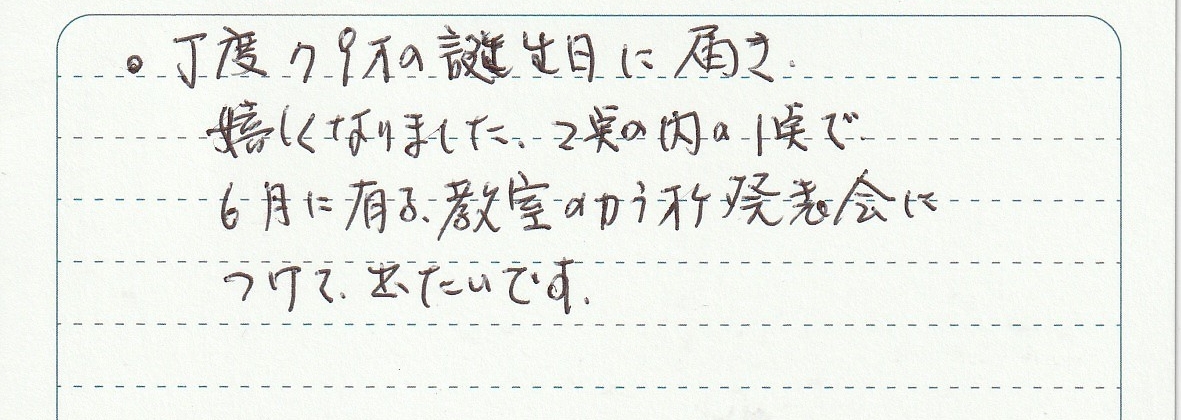 。丁度79才の誕生日に届き.
嬉しくなりました、2点の内の1点で
6月に有る、教室のカラオケ発表会に
つけて、出たいです.